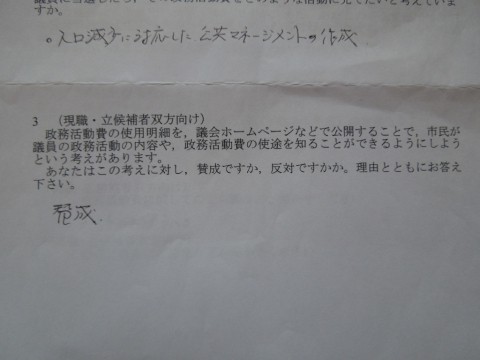 議員に当選したら，その政務活動費をどのような活動に充てたいと考えていま
すか。
○人口減少に対応した公共マネージメントの作成
3　（現職・立候補者双方向け）
政務活動費の使用明細を，議会ホームページなどで公開することで，市民が
議員の政務活動の内容や，政務活動費の使途を知ることができるようにしよう
という考えがあります。
あなたはこの考えに対し，賛成ですか，反対ですかか。理由とともにお答え
下さい。
賛成.